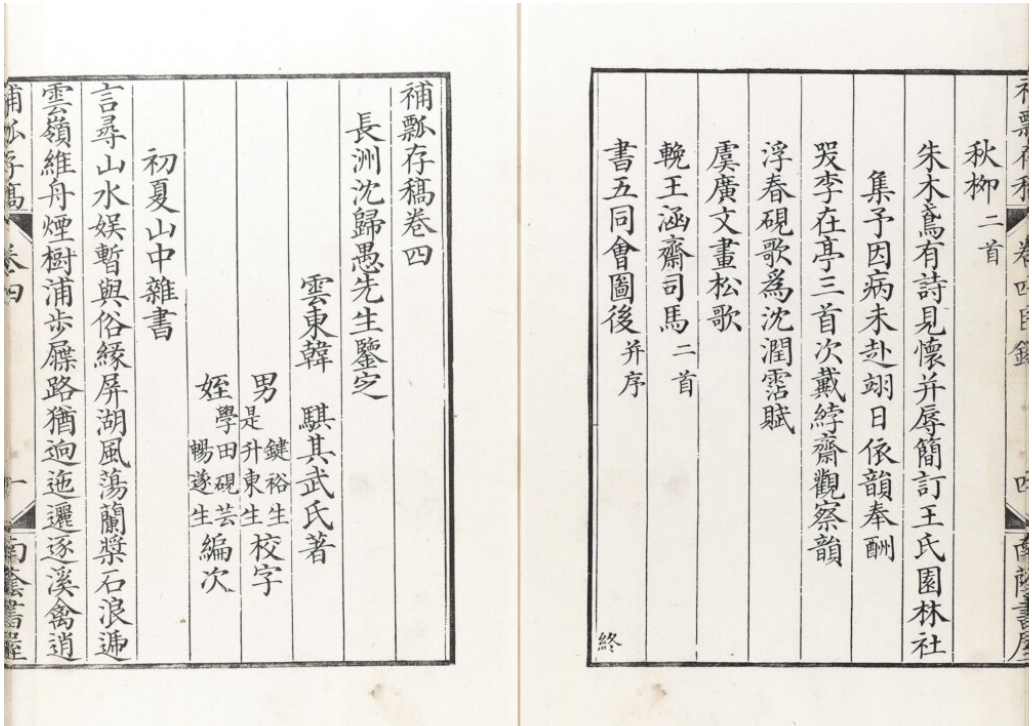 補瓢存稿 卷四目錄 四 南蔭書屋
秋柳二首
朱木鳶有詩見懷并辱簡訂王氏園林社
集予因病未赴翊日依韻奉酬
哭李在亭三首次戴紵齋觀察韻
浮春硯歌爲沈潤霑賦
虞廣文畫松歌
輓王涵齋司馬二首
書五同會圖後并序
終
補瓢存稿卷四
長洲沈歸愚先生鑒㝎
雲東韓 騏其武氏著
男是鍵裕生升東生校字
姪學田硯芸暢遂生編次
初夏山中雜書
言尋山水娱暫與俗緣屏湖風蕩蘭槳石浪遍
雲嶺維舟煙樹浦步屧路猶逈迤邐逐溪禽逍
補瓢存稿 卷四 一 南蔭書屋